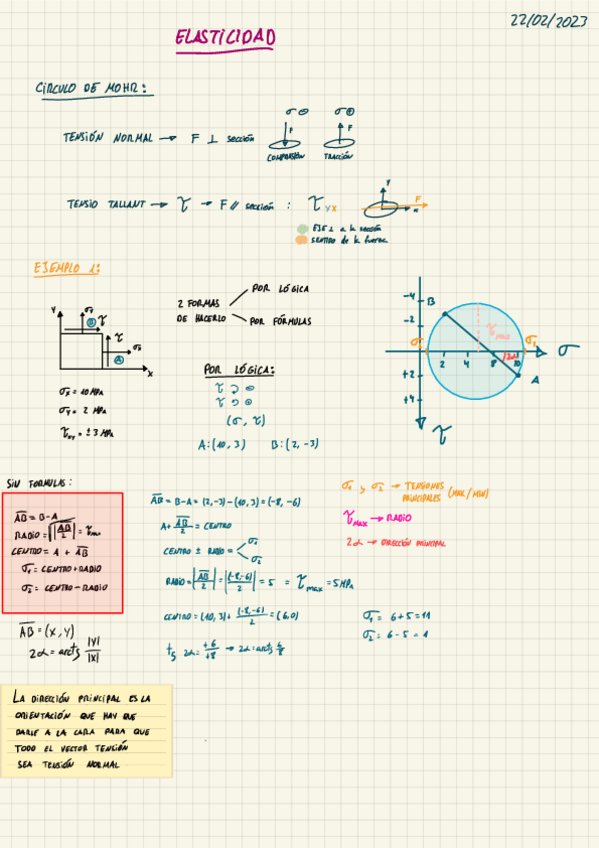 22/02/2023
ELASTICIDAD
CÍRCULO DE MOHR:
σ ⊖ σ ⊕
TENSIÓN NORMAL → F ⊥ sección
F F
COMPRESIÓN TRACCIÓN
TENSIO TALLANT → τ → F // sección : τ yx
y F x
EJE ⊥ a la sección
SENTIDO de la fuerza
EJEMPLO 1:
2 FORMAS DE HACERLO
POR LÓGICA
POR FÓRMULAS
y σy B τ τ σx A x
σx = 10 MPa
σy = 2 MPa
τxy = ±3 MPa
POR LÓGICA:
τ ↻ ⊖
τ ↺ ⊕
(σ, τ)
A: (10, 3) B: (2, -3)
-4
B
-2
τMAX
σ σ1 σ
2 4 8 10
2α
+2
A
+4
τ
SIN FORMULAS:
AB = B-A
RADIO = |AB/2| = τmax
CENTRO = A + AB/2
σ1 = CENTRO + RADIO
σ2 = CENTRO - RADIO
AB = (X, Y)
2α = arctg |Y|/|X|
AB = B-A = (2,-3) - (10,3) = (-8, -6)
A + AB/2 = CENTRO
CENTRO ± RADIO = σ1 σ2
RADIO = |AB/2| = |(-8,-6)/2| = 5 = τmax = 5 MPa
CENTRO = (10, 3) + (-8,-6)/2 = (6,0)
tg 2α = +6/+8 → 2α = arctg 6/8
σ1 y σ2 → TENSIONES PRINCIPALES (MAX/MIN)
τMAX → RADIO
2α → DIRECCIÓN PRINCIPAL
σ1 = 6+5 = 11
σ2 = 6-5 = 1
LA DIRECCIÓN PRINCIPAL ES LA
ORIENTACIÓN QUE HAY QUE
DARLE A LA CARA PARA QUE
TODO EL VECTOR TENSIÓN
SEA TENSIÓN NORMAL